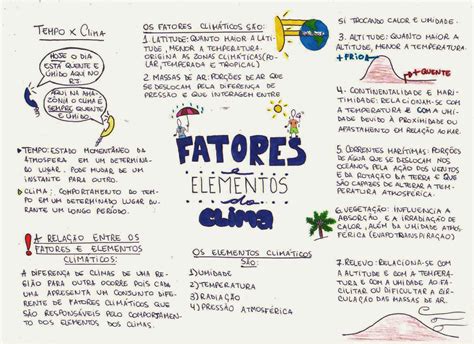 TEMPO X CLIMA
HOJE O DIA
ESTÁ QUENTE E
ÚMIDO AQUI NO
RJ.
AQUI NA AMA-
ZÔNIA O CLIMA É
SEMPRE QUENTE
E ÚMIDO.
TEMPO: ESTADO MOMENTÂNEO DA
ATMOSFERA EM UM DETERMINA-
DO LUGAR. PODE MUDAR DE UM
INSTANTE PARA OUTRO.
CLIMA: COMPORTAMENTO DO TEM-
PO EM UM DETERMINADO LUGAR DU-
RANTE UM LONGO PERÍODO.
! A RELAÇÃO ENTRE OS
FATORES E ELEMENTOS
CLIMÁTICOS:
A DIFERENÇA DE CLIMAS DE UMA RE-
GIÃO PARA OUTRA OCORRE POIS CADA
UMA APRESENTA UM CONJUNTO DIFE-
RENTE DE FATORES CLIMÁTICOS QUE
SÃO RESPONSÁVEIS PELO COMPORTAMEN-
TO DOS ELEMENTOS DOS CLIMAS.
OS FATORES CLIMÁTICOS SÃO:
1. LATITUDE: QUANTO MAIOR A LATI-
TUDE, MENOR A TEMPERATURA.
ORIGINA AS ZONAS CLIMÁTICAS (PO-
LAR, TEMPERADA E TROPICAL)
2. MASSAS DE AR: PORÇÕES DE AR QUE
SE DESLOCAM PELA DIFERENÇA DE
PRESSÃO E QUE INTERAGEM ENTRE
FATORES
e
ELEMENTOS
do
CLIMA
OS ELEMENTOS CLIMÁTICOS
SÃO:
1) UMIDADE
2) TEMPERATURA
3) RADIAÇÃO
4) PRESSÃO ATMOSFÉRICA
SI TROCANDO CALOR E UMIDADE.
3. ALTITUDE: QUANTO MAIOR A
ALTITUDE, MENOR A TEMPERATURA.
+FRIO
+QUENTE
4. CONTINENTALIDADE E MARI-
TIMIDADE: RELACIONAM-SE COM
A TEMPERATURA E COM A UMIDA-
DE DEVIDO À PROXIMIDADE OU
AFASTAMENTO EM RELAÇÃO AO MAR.
5. CORRENTES MARÍTIMAS: PORÇÕES
DE ÁGUA QUE SE DESLOCAM NOS
OCEANOS PELA AÇÃO DOS VENTOS
E DA ROTAÇÃO DA TERRA E QUE
SÃO CAPAZES DE ALTERAR A TEM-
PERATURA ATMOSFÉRICA.
6. VEGETAÇÃO: INFLUENCIA A
ABSORÇÃO E A IRRADIAÇÃO DE
CALOR, ALÉM DA UMIDADE ATMOS-
FÉRICA (EVAPOTRANSPIRAÇÃO)
7. RELEVO: RELACIONA-SE COM
A ALTITUDE E COM A TEMPERA-
TURA E COM A UMIDADE AO FA-
CILITAR OU DIFICULTAR A CIR-
CULAÇÃO DAS MASSAS DE AR.